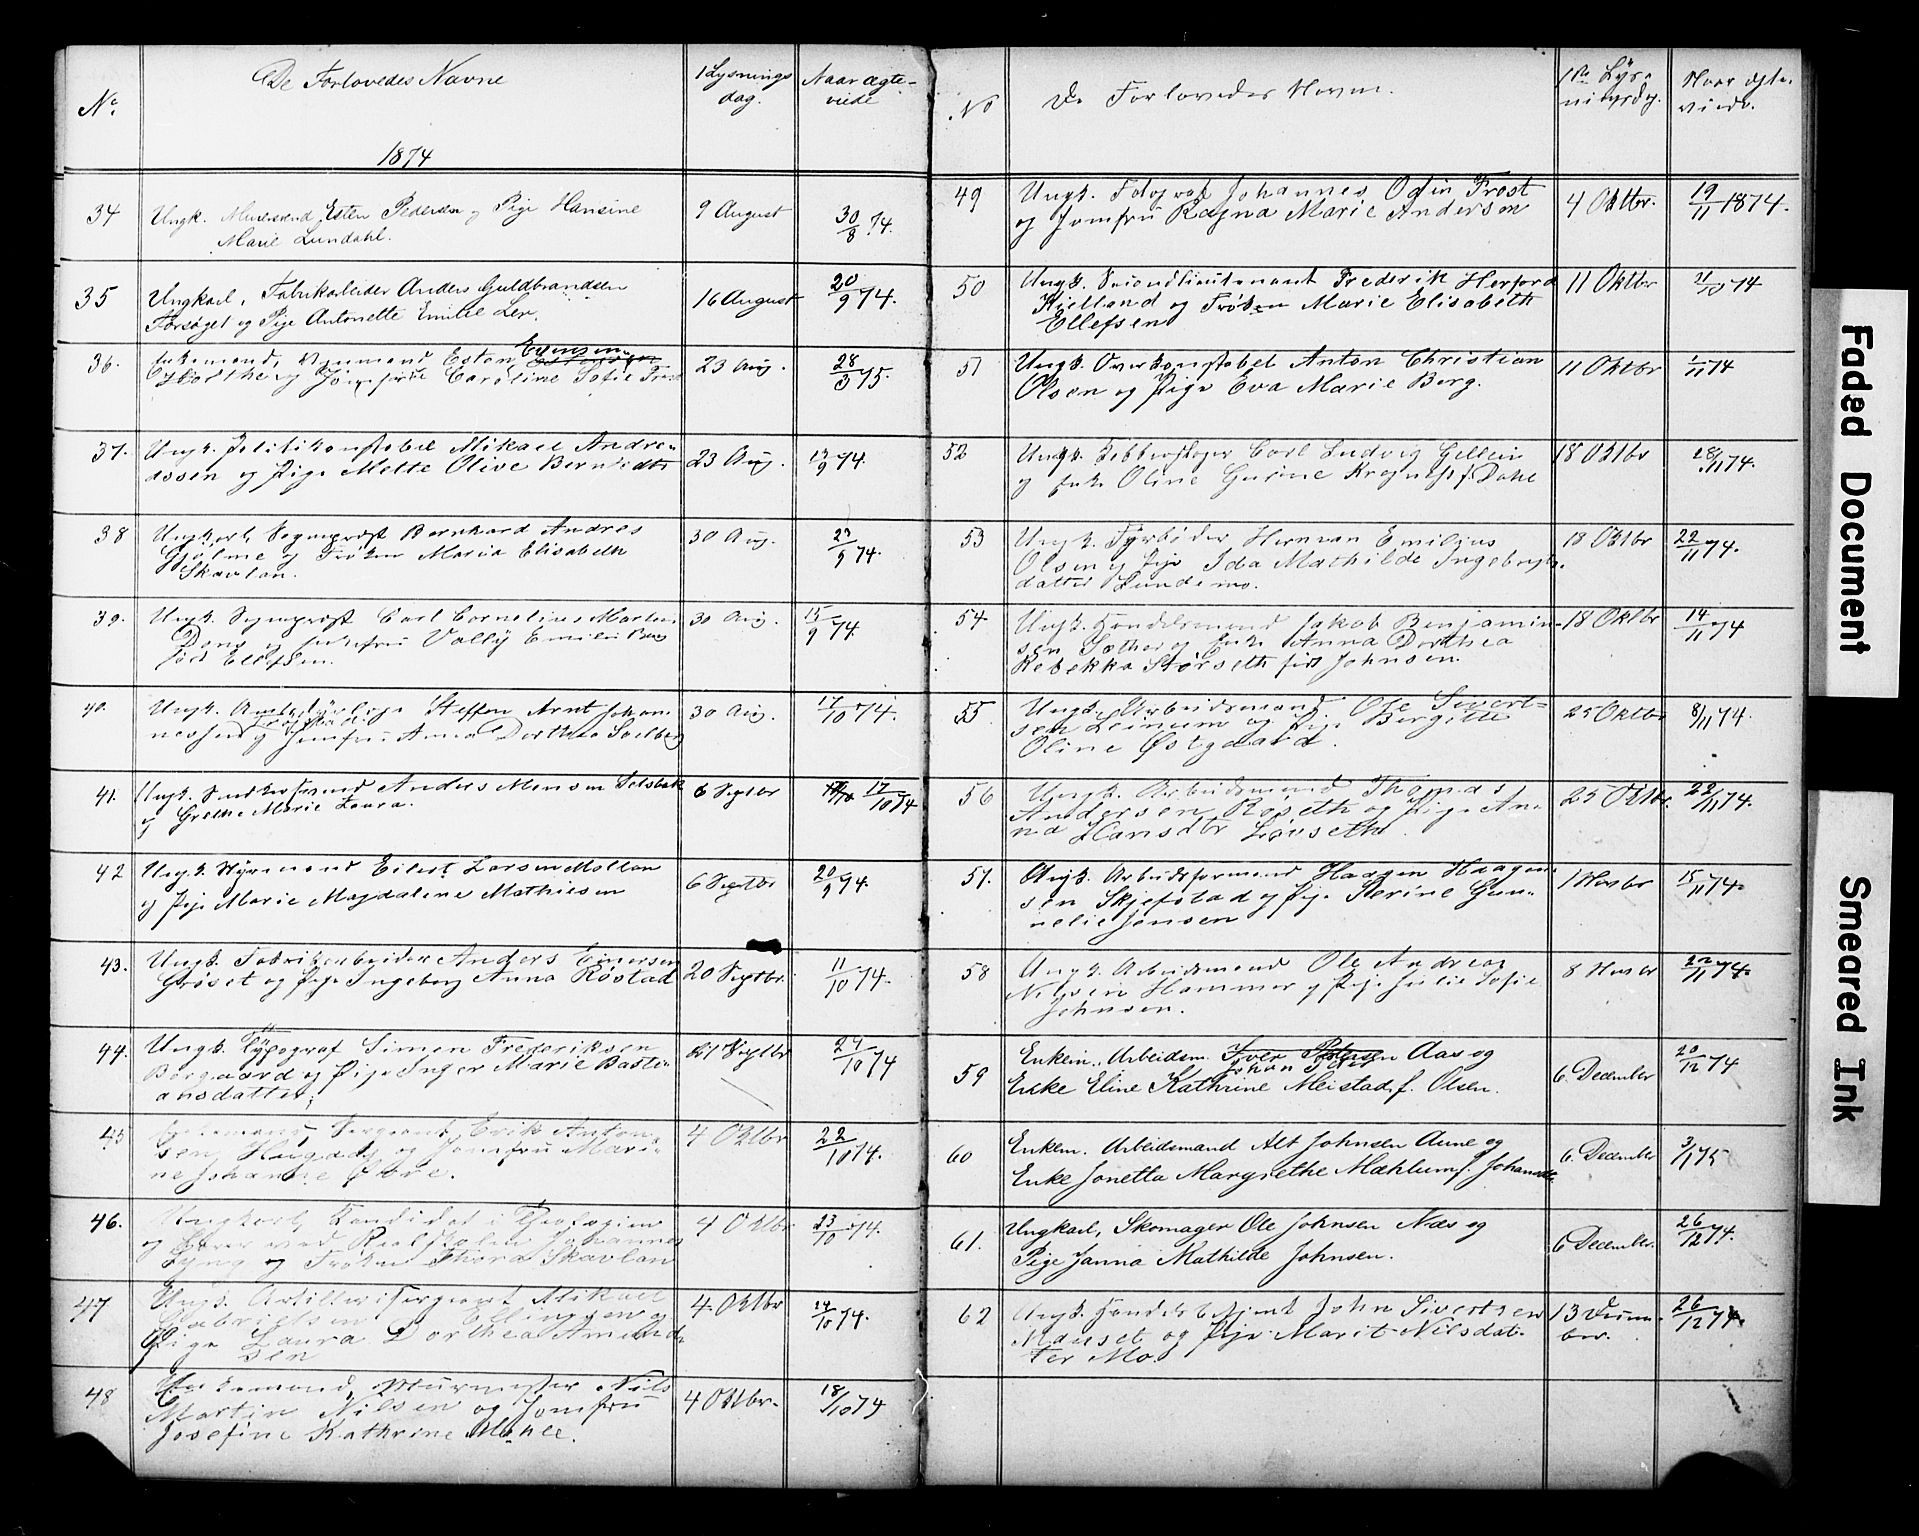 No
De Forlovedes Navne
1874
1 Lysnings
dag.
Naar ægte-
viede
34
Ungk. Muursvend Esten Pedersen og Pige Hansine
Marie Lundahl.
9 August
30/8 74.
35
Ungkarl, Fabrikarbeider Anders Guldbrandsen
Forsøget og Pige Antonette Emilie Ler.
16 August
20/9 74.
36.
Enkemand, Esten Evensen
og Jomfru Caroline Sofie
23 Aug.
28/3 75.
37.
Ungk. Politikonstabel Mikael Andre-
assen og Pige Mette Olive Berntsdtr
23 Aug.
13/9 74.
38
Ungkarl, Sogneprest Bernhard Andres
Gjølme og Frøken Maria Elisabeth
Skavlan.
30 Aug.
23/9 74.
39.
Ungk. Sogneprest Carl Cornelius Martin
og Enkefru Vally Emilie Berg
født Ellefsen.
30 Aug.
15/9 74.
40.
Ungk. Steffen Arnt Johan-
nessen og Jomfru Anna Dorthea Solberg
30 Aug.
17/10 74.
41.
Ungk. Anders Monsen Selsbak
og Grethe Marie Laura.
6 Septbr
17/10 74
42
Ungk. Styrmand Eilert Larsen Mollan
og Pige Marie Magdalene Mathiesen
6 Septbr
20/9 74.
43.
Ungk. Fabrikarbeider Anders Einersen
Grøset og Pige Ingeborg Anna Røstad
20 Septbr.
11/10 74.
44.
Ungk. Typograf Simen Frederiksen
Borgaard og Pige Inger Marie Basti-
ansdatter;
27 Septbr
24/10 74
45
Enkemand, Sergeant Erik Anton-
sen Haugady og Jomfru Mari-
ne Johanne
4 Oktbr
22/10 74.
46.
Ungkarl, Kandidat i Theologien
og Lærer ved Realskolen Johannes
Lyng og Frøken Thora Skavlan
4 Oktbr.
23/10 74.
47
Ungk. Artillerisergeant Mikael
Gabrielsen Ellingsen og
Pige Laura Dorthea Amund-
sen
4. Oktbr
24/10 74.
48
Enkemand, Murmester Nils
Martin Nilsen og Jomfru
Josefine Kathrine Mohle.
4 Oktbr.
18/10 74
No
De Forlovedes Navne.
1ste Lys-
ningsdg.
Naar ægte-
viede.
49
Ungk. Fotograf Johannes Odin Frost
og Jomfru Ragna Marie Andersen
4 Oktbr.
19/11 1874.
50
Ungk. Secondlieutenant Frederik Herford
Kielland og Frøken Marie Elisabeth
Ellefsen
11 Oktbr
21/10 74
51
Ungk. Overkonstabel Anton Christian
Olsen og Pige Eva Marie Berg.
11 Oktbr
1/11 74
52
Ungk. Kobberslager Carl Ludvig Gellein
og Enke Oline Gurine f. Dahl
18 Oktbr
28/11 74.
53
Ungk. Fyrbøder Herman Emilius
Olsen og Pige Ida Mathilde Ingebrigts-
datter Lundemo.
18 Oktbr
22/11 74.
54
Ungk. Handelsmand Jakob Benjamin-
sen Sæther og Enke Anna Dorthea
Rebekka Størseth født Johnsen.
18 Oktbr
14/11 74
55
Ungk. Arbeidsmand Ole Sivert-
sen Leinum og Pige Bergitte
Oline Østgaard.
25 Oktbr
8/11 74.
56
Ungk. Arbeidsmand Thomas
Andersen Røseth og Pige An-
na Hansdtr Løvseth.
25 Oktbr.
22/11 74.
57.
Ungk. Arbeidsformand Haagen Haagen-
sen Skjefstad og Pige Perine Gun-
nelie Jensen
1 Novbr
15/11 74.
58
Ungk. Arbeidsmand Ole Andreas
Nilsen Hammer og Pige Julie Sofie
Johnsen.
8 Novbr
22/11 74.
59
Enkem. Arbeidsm. Iver Petersen Aas og
Johan Peter
Enke Eline Kathrine Meistad f. Olsen.
6. December
20/12 74
60
Enkem. Arbeidsmand Alt Johnsen Aune og
Enke Jonetta Margrethe Mæhlum f. Johansdtr
6. December
3/1 75
61.
Ungkarl, Skomager Ole Johnsen Næs og
Pige Janna Mathilde Johnsen.
6 December.
26/12 74.
62
Ungk. Handelsbetjent John Sivertsen
Mauset og Pige Marit Nilsdat-
ter Mo.
13 Decem-
ber.
26/12 74.
Faded Document
Smeared Ink